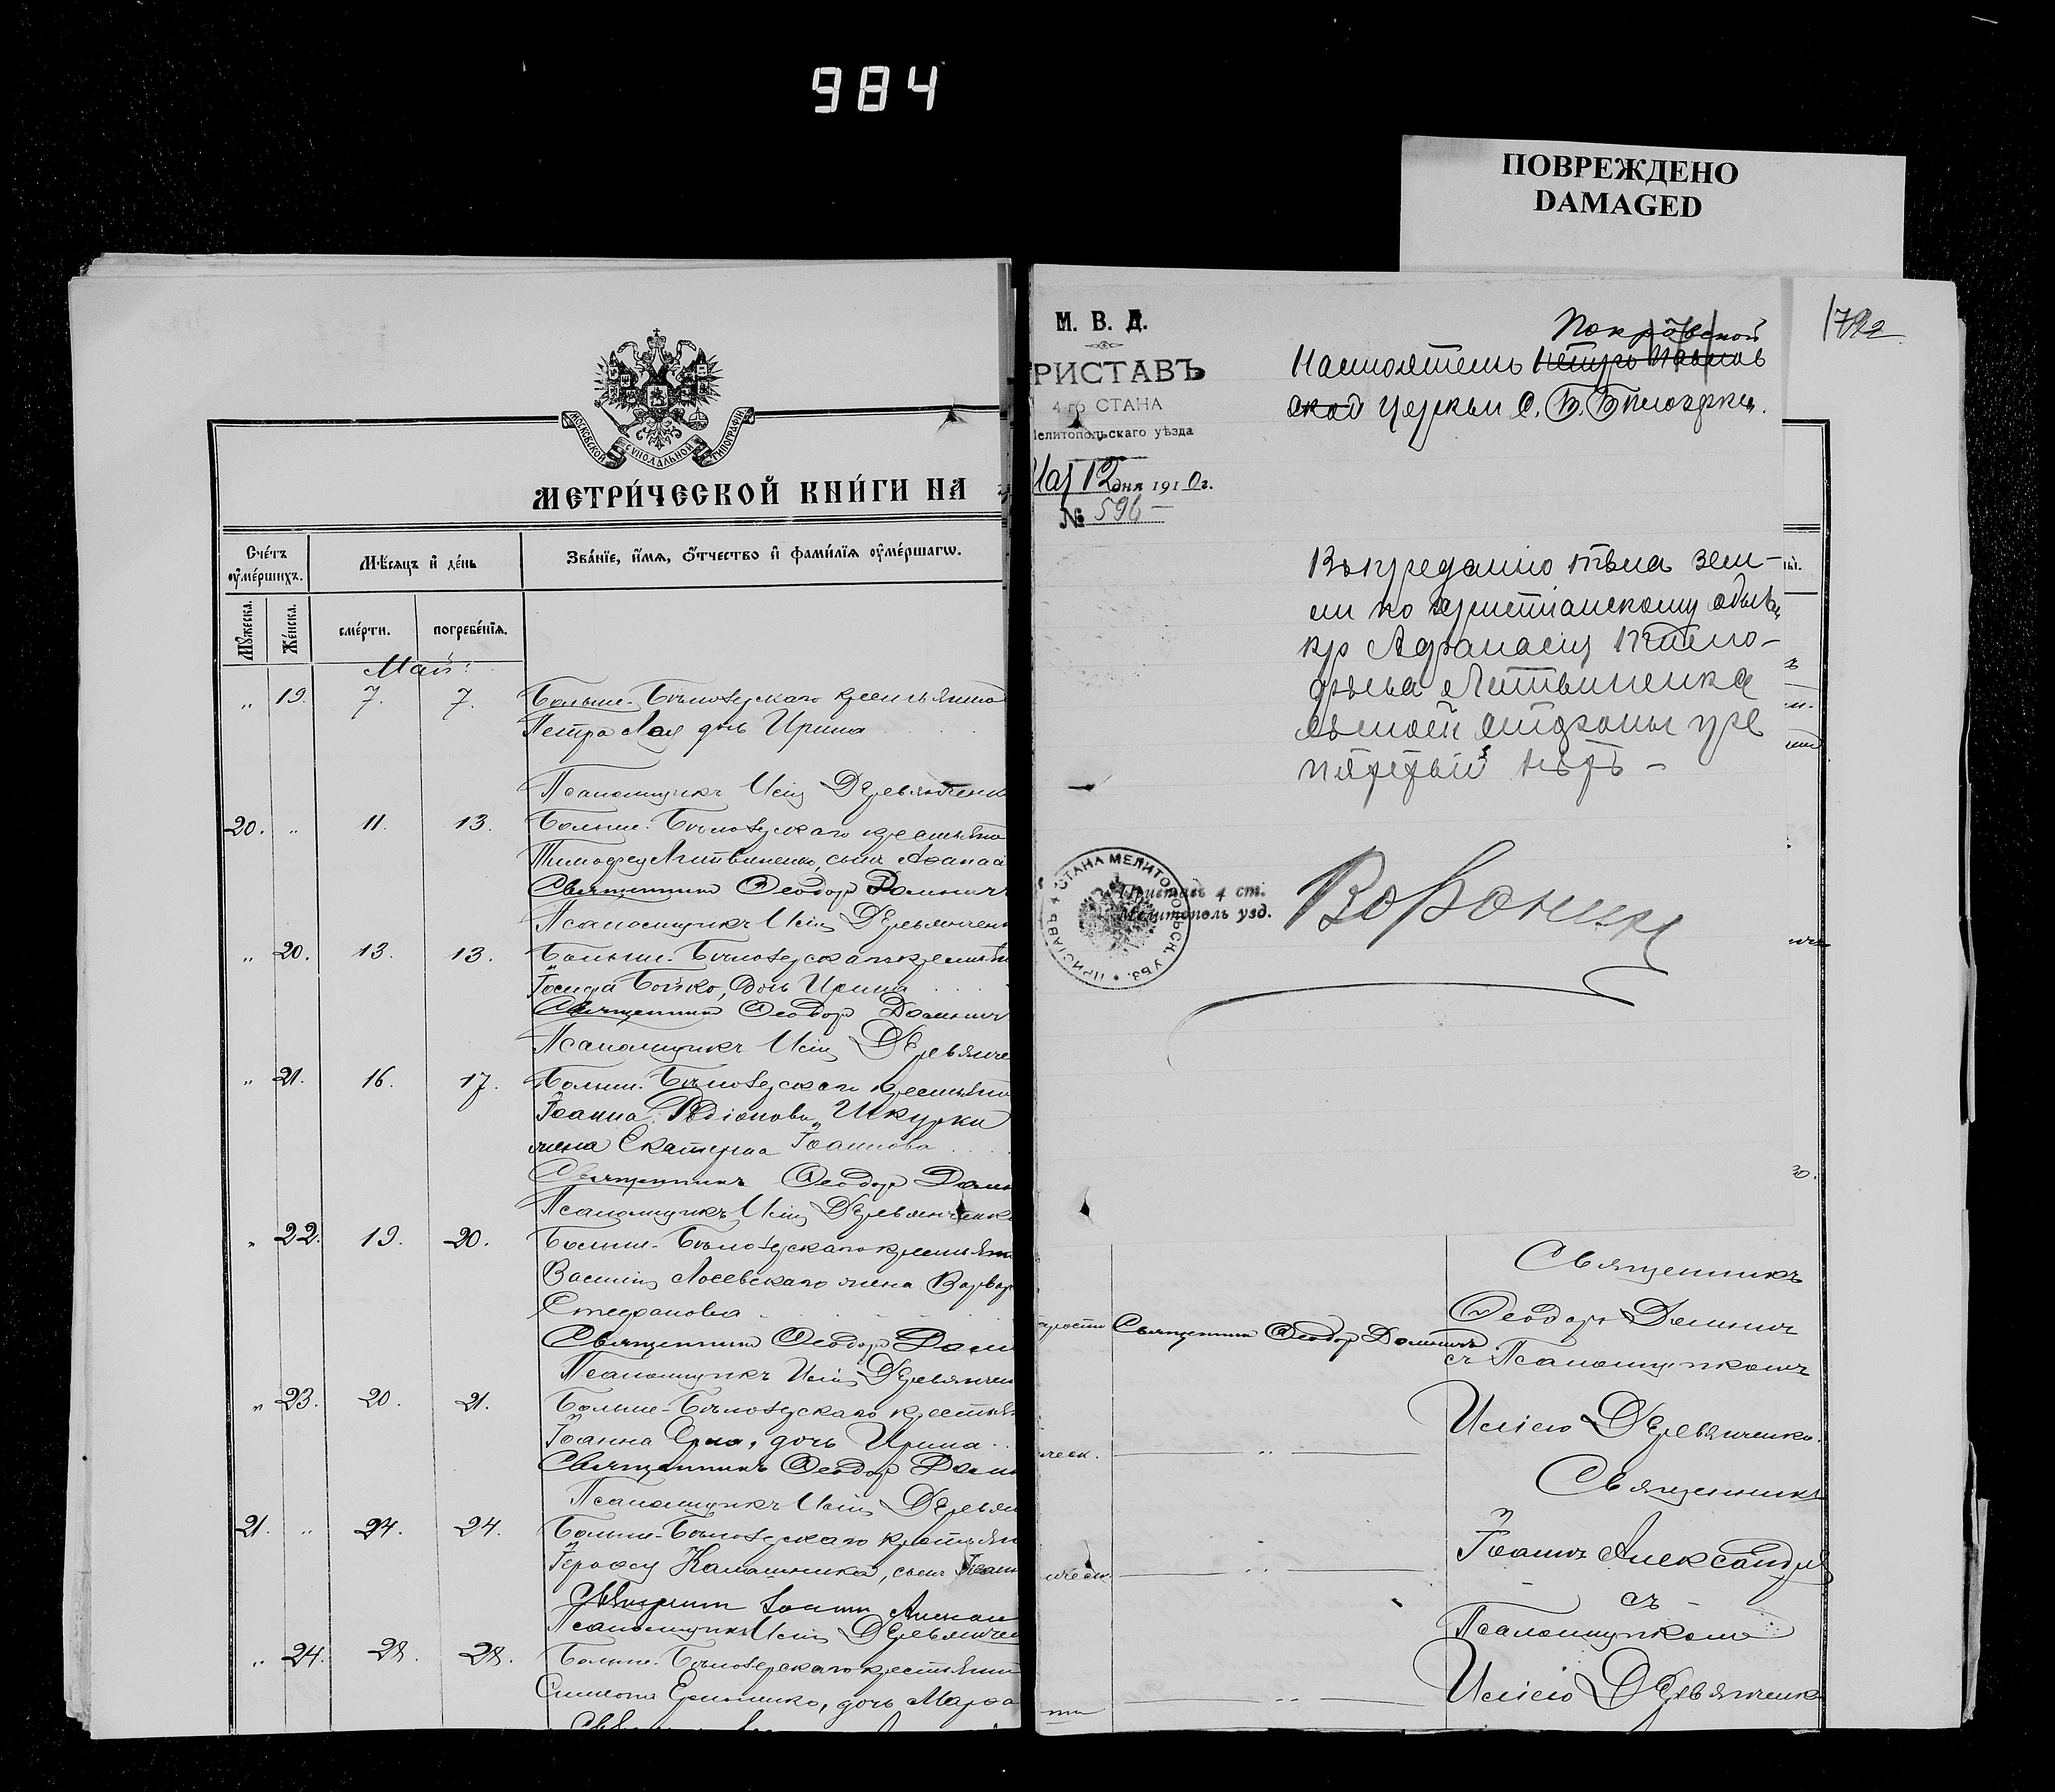 984
ПОВРЕЖДЕНО
DAMAGED
МОСКОВСКОЙ СѴНОДАЛЬНОЙ ТИПОГРАФІИ
МЕТРИ́ЧЕСКОЙ КНИ́ГИ НА
Сче́тъ ᲂу҆ме́ршихъ.
Мѣ́сѧцъ и҆ де́нь
Зва́нїе, и҆́мѧ, ѻ҆́тчество и҆ фами́лїѧ ᲂу҆ме́ршагѡ.
Мꙋ́жеска.
Же́нска.
сме́рти.
погребе́нїѧ.
Май:
„ 19. 7. 7. Больше-Бѣлозерскаго крестьянина
Петра Лая дчь Ирина
Псаломщикъ Исій Деревянченк
20. „ 11. 13. Больше-Бѣлозерскаго крестьяни
Тимофея Литвиненко, сынъ Аѳанас
Священникъ Ѳеодоръ Домнич
Псаломщикъ Исій Деревянчен
„ 20. 13. 13. Больше-Бѣлозерскаго крестьян
Іосифа Бойко, дочь Ирина
Священникъ Ѳеодоръ Домнич
Псаломщикъ Исій Деревянче
„ 21. 16. 17. Больше-Бѣлозерскаго крестьяни
Іоанна Родіонова Шкурки
жена Екатерина Іоаннова
Священникъ Ѳеодоръ Домн
Псаломщикъ Исій Деревянченк
„ 22. 19. 20. Больше-Бѣлозерскаго крестьян
Василія Лосевскаго жена Варвар
Стефановна
Священникъ Ѳеодоръ Дом
Псаломщикъ Исій Деревянчен
„ 23. 20. 21. Больше-Бѣлозерскаго крестьян
Іоанна дочь Ирина
Священникъ Ѳеодоръ Домн
Псаломщикъ Исій Деревян
21. „ 24. 24. Больше-Бѣлозерскаго крестьян
Калашника, сынъ Іоанн
Священникъ Іоаннъ Алексан
Псаломщикъ Исій Деревянчен
„ 24. 28. 28. Больше-Бѣлозерскаго крестьянин
Симеона Ермоленко, дочь Марѳа
М. В. Д.
РИСТАВЪ
4-го СТАНА
Мелитопольскаго уѣзда
Мая 12 дня 1910 г.
№ 596
1792
Покровской
Настоятелю Петро-Павлов
ской церкви с. Б. Бѣлозерки.
Къ преданію тѣла зем-
ли по христіанскому обычаю
кр Афанасія Тимо-
фѣева Литвиненка
съ моей стороны пре
пятствій нѣтъ –
ПРИСТАВЪ 4 СТАНА МЕЛИТОПОЛЬСК. УѢЗ.
Приставъ 4 ст.
Мелитополь узд.
Воронин
Священникъ
Ѳеодоръ Домнич
Священникъ Ѳеодоръ Домничъ
съ Псаломщикомъ
Исіею Деревянченко.
Священникъ
Іоаннъ Александр
съ
Псаломщикомъ
Исіею Деревянченко